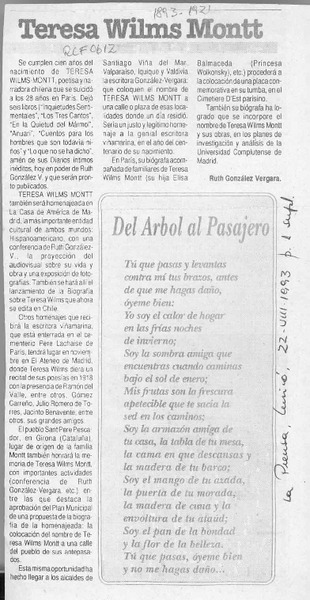 1893-1921
Teresa Wilms Montt
RCF0612
Se cumplen cien años del
nacimiento de TERESA
WILMS MONTT, poetisa y na-
rradora chilena que se suicidó
a los 28 años en París. Dejó
seis libros ("Inquietudes Senti-
mentales", "Los Tres Cantos",
"En la Quietud del Mármol",
"Anuarí", "Cuentos para los
hombres que son todavía ni-
ños" y "Lo que no se ha dicho",
amén de sus Diarios íntimos
inéditos, hoy en poder de Ruth
González V. y que serán pron-
to publicados.
TERESA WILMS MONTT
también será homenajeada en
La Casa de América de Ma-
drid, la más importante entidad
cultural de ambos mundos:
Hispanoamericano, con una
conferencia de Ruth González-
V., la proyección del
audiovisual sobre su vida y
obra y una exposición de foto-
grafías. También se hará allí el
lanzamiento de la Biografía
sobre Teresa Wilms que ahora
se edita en Chile.
Otros homenajes que reci-
birá la escritora viñamarina,
que está enterrada en el ce-
menterio Pere Lachaise de
París, tendrá lugar en noviem-
bre en El Ateneo de Madrid,
donde Teresa Wilms diera un
recital de sus poesías en 1918
con la presencia de Ramón del
Valle, entre otros, Gómez
Carreño, Julio Romero de To-
rres, Jacinto Benavente, entre
otros, sus grandes amigos.
El pueblo Sant Pere Pesca-
dor, en Girona (Cataluña),
lugar de origen de la familia
Montt también honrará la me-
moria de Teresa Wilms Montt,
con importantes actividades
(conferencia de Ruth
González-Vergara, etc.) entre
las que destaca la
aprobación del Plan Municipal
de una propuesta de la biogra-
fía de la homenajeada: la co-
locación del nombre de Teresa
Wilms Montt a una calle del
pueblo de sus antepasa-
dos.
Esta misma oportunidad ha
hecho llegar a los alcaldes de
Santiago Viña del Mar,
Valparaíso, Iquique y Valdivia
la escritora González-Vergara:
que coloquen el nombre de
TERESA WILMS MONTT a
una calle o plaza de esas loca-
lidades donde un día residió.
Sería un justo y legítimo home-
naje a la genial escritora
viñamarina, en el año del cen-
tenario de su nacimiento.
En París, su biógrafa acom-
pañada de familiares de Teresa
Wilms Montt (su hija Elisa
Balmaceda (Princesa
Wolkonsky), etc.) procederá a
la colocación de una placa con-
memorativa en su tumba, en el
Cimetiere D'Est parisino.
También su biógrafa ha lo-
grado que se incorpore el nom-
bre de Teresa Wilms Montt y
sus obras, en los planes de
investigación y análisis de la
Universidad Complutense de
Madrid.
Ruth González Vergara.
Del Arbol al Pasajero
Tú que pasas y levantas
contra mí tus brazos, antes
de que me hagas daño,
óyeme bien:
Yo soy el calor de hogar
en las frías noches
de invierno;
Soy la sombra amiga que
encuentras cuando caminas
bajo el sol de enero;
Mis frutos son la frescura
apetecible que te sacia la
sed en los caminos;
Soy la armazón amiga de
tu casa, la tabla de tu mesa,
la cama en que descansas y
la madera de tu barco;
Soy el mango de tu azada,
la puerta de tu morada,
la madera de cuna y la
envoltura de tu ataúd;
Soy el pan de la bondad
y la flor de la belleza.
Tú que pasas, óyeme bien
y no me hagas daño...
La Prensa, Curicó, 22-VIII-1993 p. 1 supl